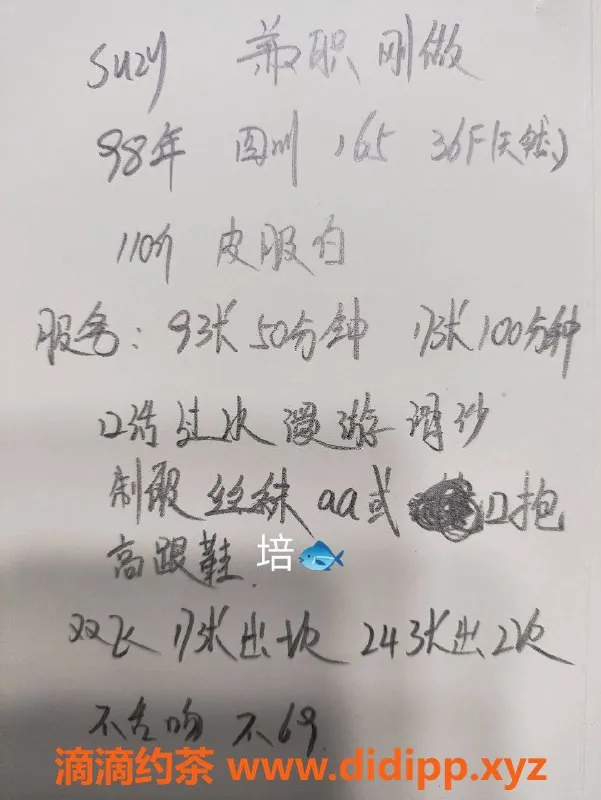 suzy 兼职 刚做
98年 四川 165 36F(天然)
110斤 皮肤白
服务: 93张 50分钟 173张 100分钟
口活 过水 漫游 调沙
制服 丝袜 aa式 口抱
高跟鞋 培🐟
双飞 173张出一次 243张出2次
不舌吻 不69
滴滴约茶 www.didipp.xyz